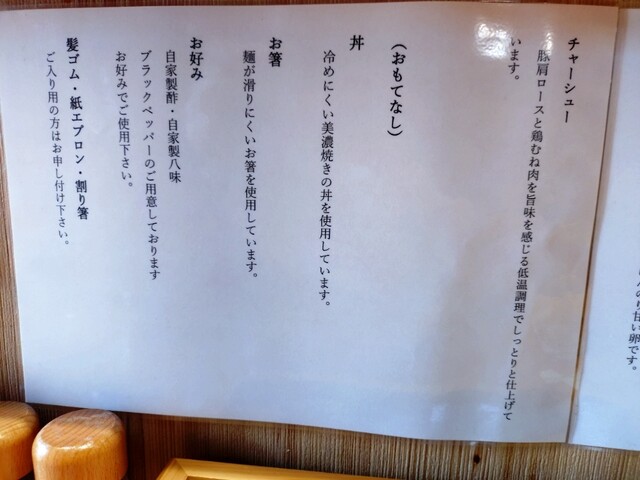 チャーシュー
豚肩ロースと鶏むね肉を旨味を感じる低温調理でしっとりと仕上げて
います。
（おもてなし）
丼
冷めにくい美濃焼きの丼を使用しています。
お箸
麺が滑りにくいお箸を使用しています。
お好み
自家製酢・自家製八味
ブラックペッパーのご用意しております
お好みでご使用下さい。
髪ゴム・紙エプロン・割り箸
ご入り用の方はお申し付け下さい。
のり甘い卵です。